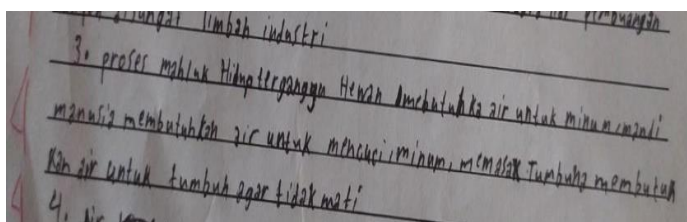 limbah industri
3. proses mahluk Hidup terganggu Hewan mebutuhka air untuk minum, mandi
manusia membutuhkan air untuk mencuci, minum, memasak Tumbuha membutuh
kan air untuk tumbuh agar tidak mati
4. air